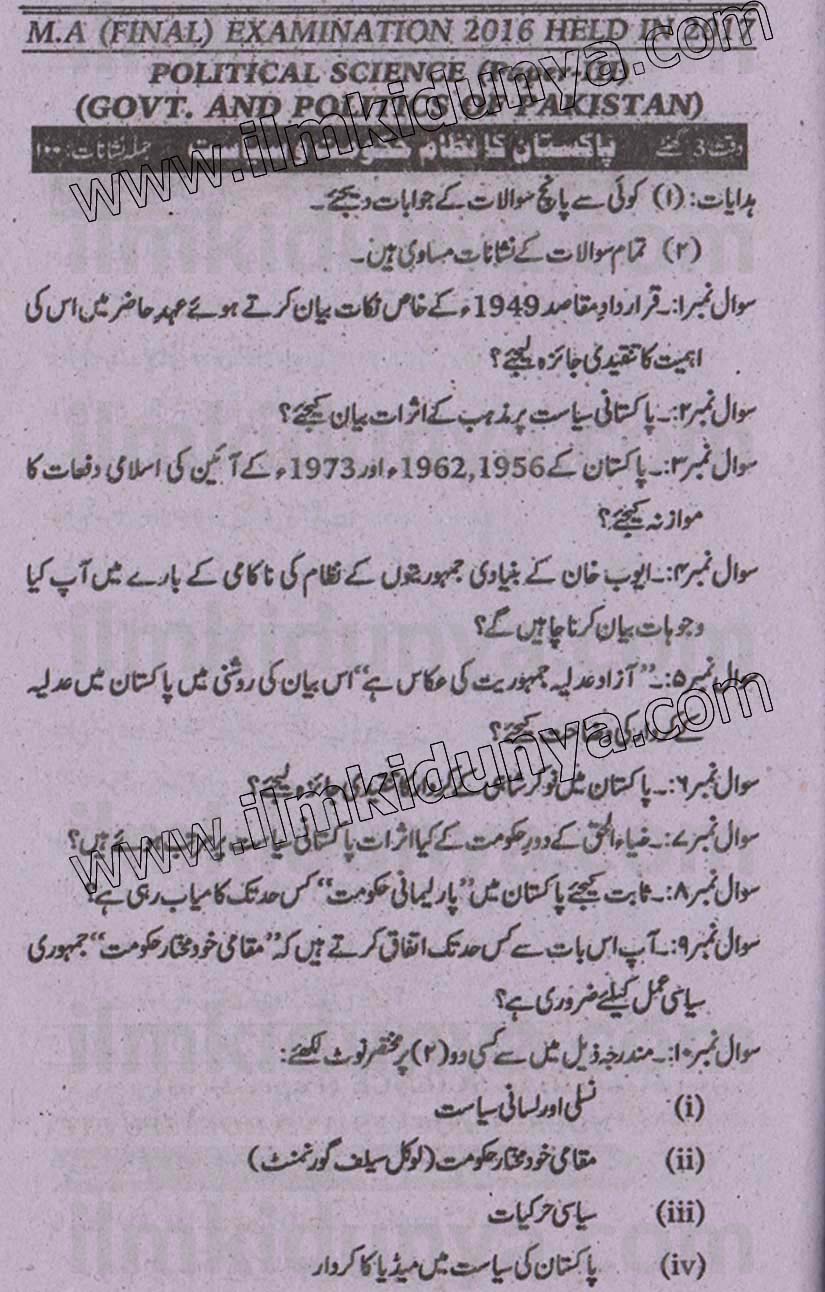 M.A (FINAL) EXAMINATION 2016 HELD IN 2017
POLITICAL SCIENCE (Paper-III)
(GOVT. AND POLITICS OF PAKISTAN)
وقت 3 گھنٹے پاکستان کا نظام حکومت و سیاست جملہ نشانات: ۱۰۰
www.ilmkidunya.com
ہدایات: (۱) کوئی سے پانچ سوالات کے جوابات دیجئے۔
(۲) تمام سوالات کے نشانات مساوی ہیں۔
سوال نمبر۱:۔ قراردادِ مقاصد 1949ء کے خاص نکات بیان کرتے ہوئے عہدِ حاضر میں اس کی
اہمیت کا تنقیدی جائزہ لیجئے؟
سوال نمبر۲:۔ پاکستانی سیاست پر مذہب کے اثرات بیان کیجئے؟
سوال نمبر۳:۔ پاکستان کے 1956, 1962ء اور 1973ء کے آئین کی اسلامی دفعات کا
موازنہ کیجئے؟
سوال نمبر۴:۔ ایوب خان کے بنیادی جمہوریتوں کے نظام کی ناکامی کے بارے میں آپ کیا
وجوہات بیان کرنا چاہیں گے؟
سوال نمبر۵:۔ ”آزاد عدلیہ جمہوریت کی عکاس ہے“ اس بیان کی روشنی میں پاکستان میں عدلیہ
کے کردار کی وضاحت کیجئے؟
سوال نمبر۶:۔ پاکستان میں نوکر شاہی کے کردار کا تنقیدی جائزہ لیجئے؟
سوال نمبر۷:۔ ضیاء الحق کے دورِ حکومت کے کیا اثرات پاکستانی سیاست پر مرتب ہوئے ہیں؟
www.ilmkidunya.com
سوال نمبر۸:۔ ثابت کیجئے پاکستان میں ”پارلیمانی حکومت“ کس حد تک کامیاب رہی ہے؟
سوال نمبر۹:۔ آپ اس بات سے کس حد تک اتفاق کرتے ہیں کہ ”مقامی خود مختار حکومت“ جمہوری
سیاسی عمل کیلئے ضروری ہے؟
سوال نمبر۱۰:۔ مندرجہ ذیل میں سے کسی دو (۲) پر مختصر نوٹ لکھئے:
(i) نسلی اور لسانی سیاست
(ii) مقامی خود مختار حکومت (لوکل سیلف گورنمنٹ)
(iii) سیاسی حرکیات
(iv) پاکستان کی سیاست میں میڈیا کا کردار